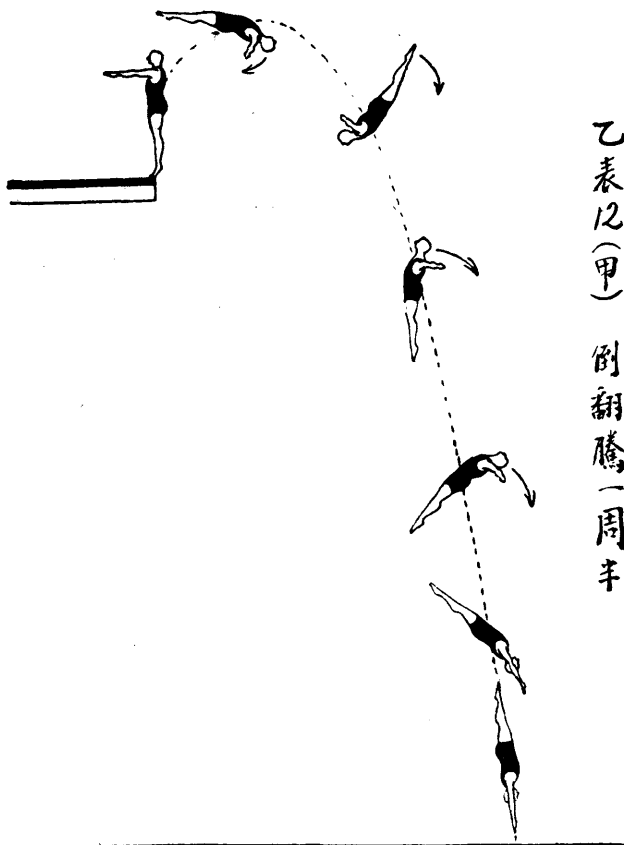 乙表12(甲) 倒翻騰一周半